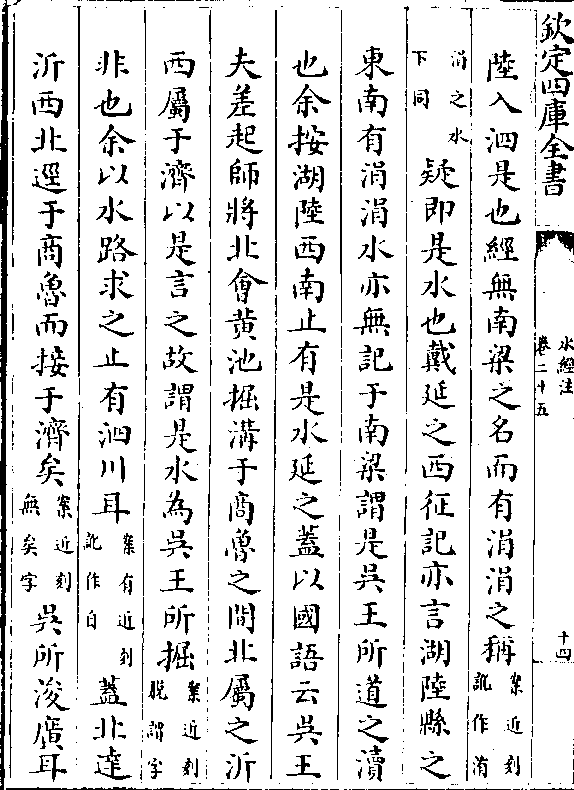 欽定四庫全書
水經注
卷二十五
十四
陸入泗是也經無南梁之名而有涓涓之稱案近刻訛作淯
涓之水下同疑即是水也戴延之西征記亦言湖陸縣之
東南有涓涓水亦無記于南梁謂是吳王所道之瀆
也余按湖陸西南止有是水延之蓋以國語云吳王
夫差起師將北會黃池掘溝于商魯之間北屬之沂
西屬于濟以是言之故謂是水為吳王所掘案近刻脱謂字
非也余以水路求之止有泗川耳案有近刻訛作自蓋北達
沂西北逕于商魯而接于濟矣案近刻無矣字吳所浚廣耳